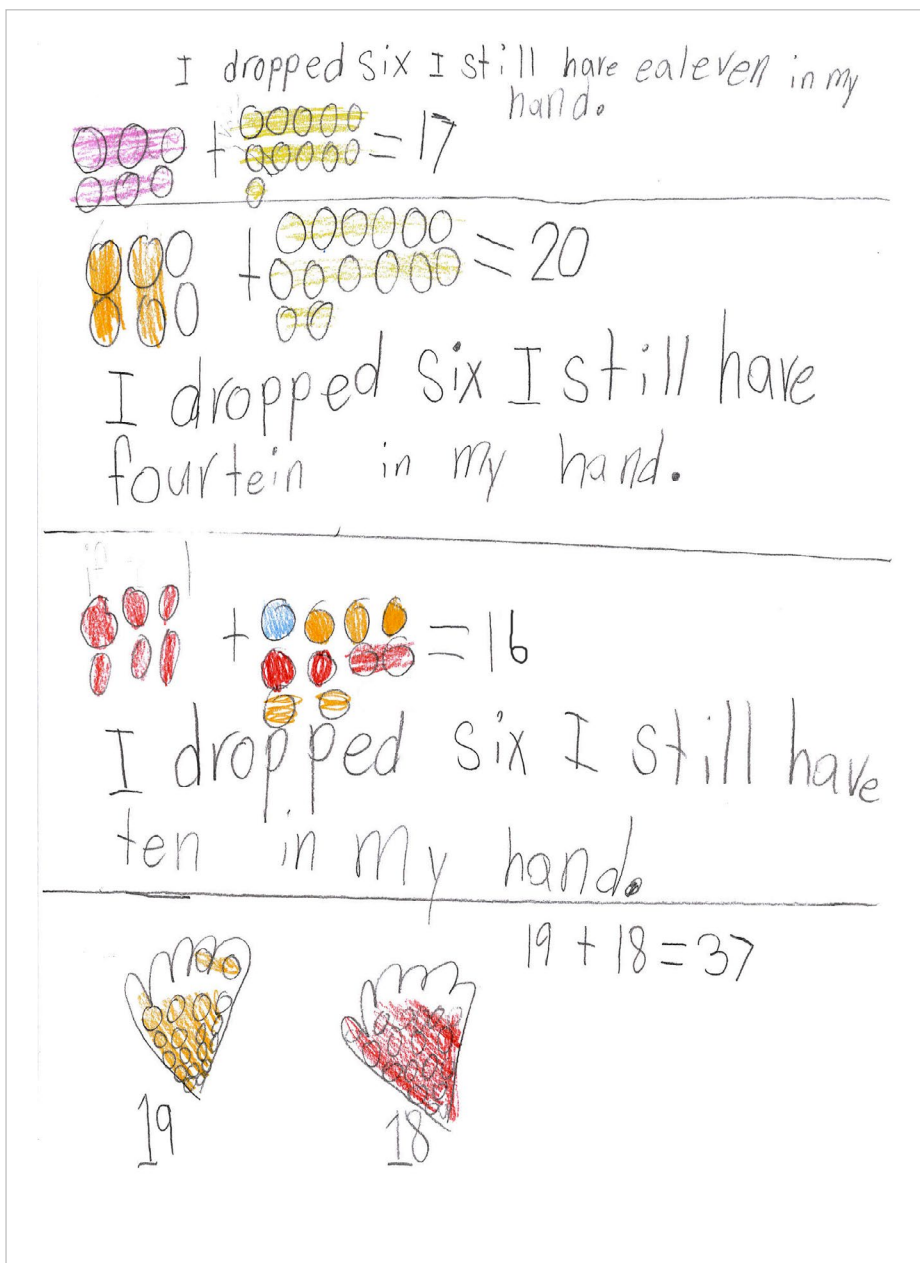 I dropped six I still have ealeven in my
hand.
+ = 17
+ = 20
I dropped six I still have
fourtein in my hand.
+ = 16
I dropped six I still have
ten in my hand.
19 + 18 = 37
19 18